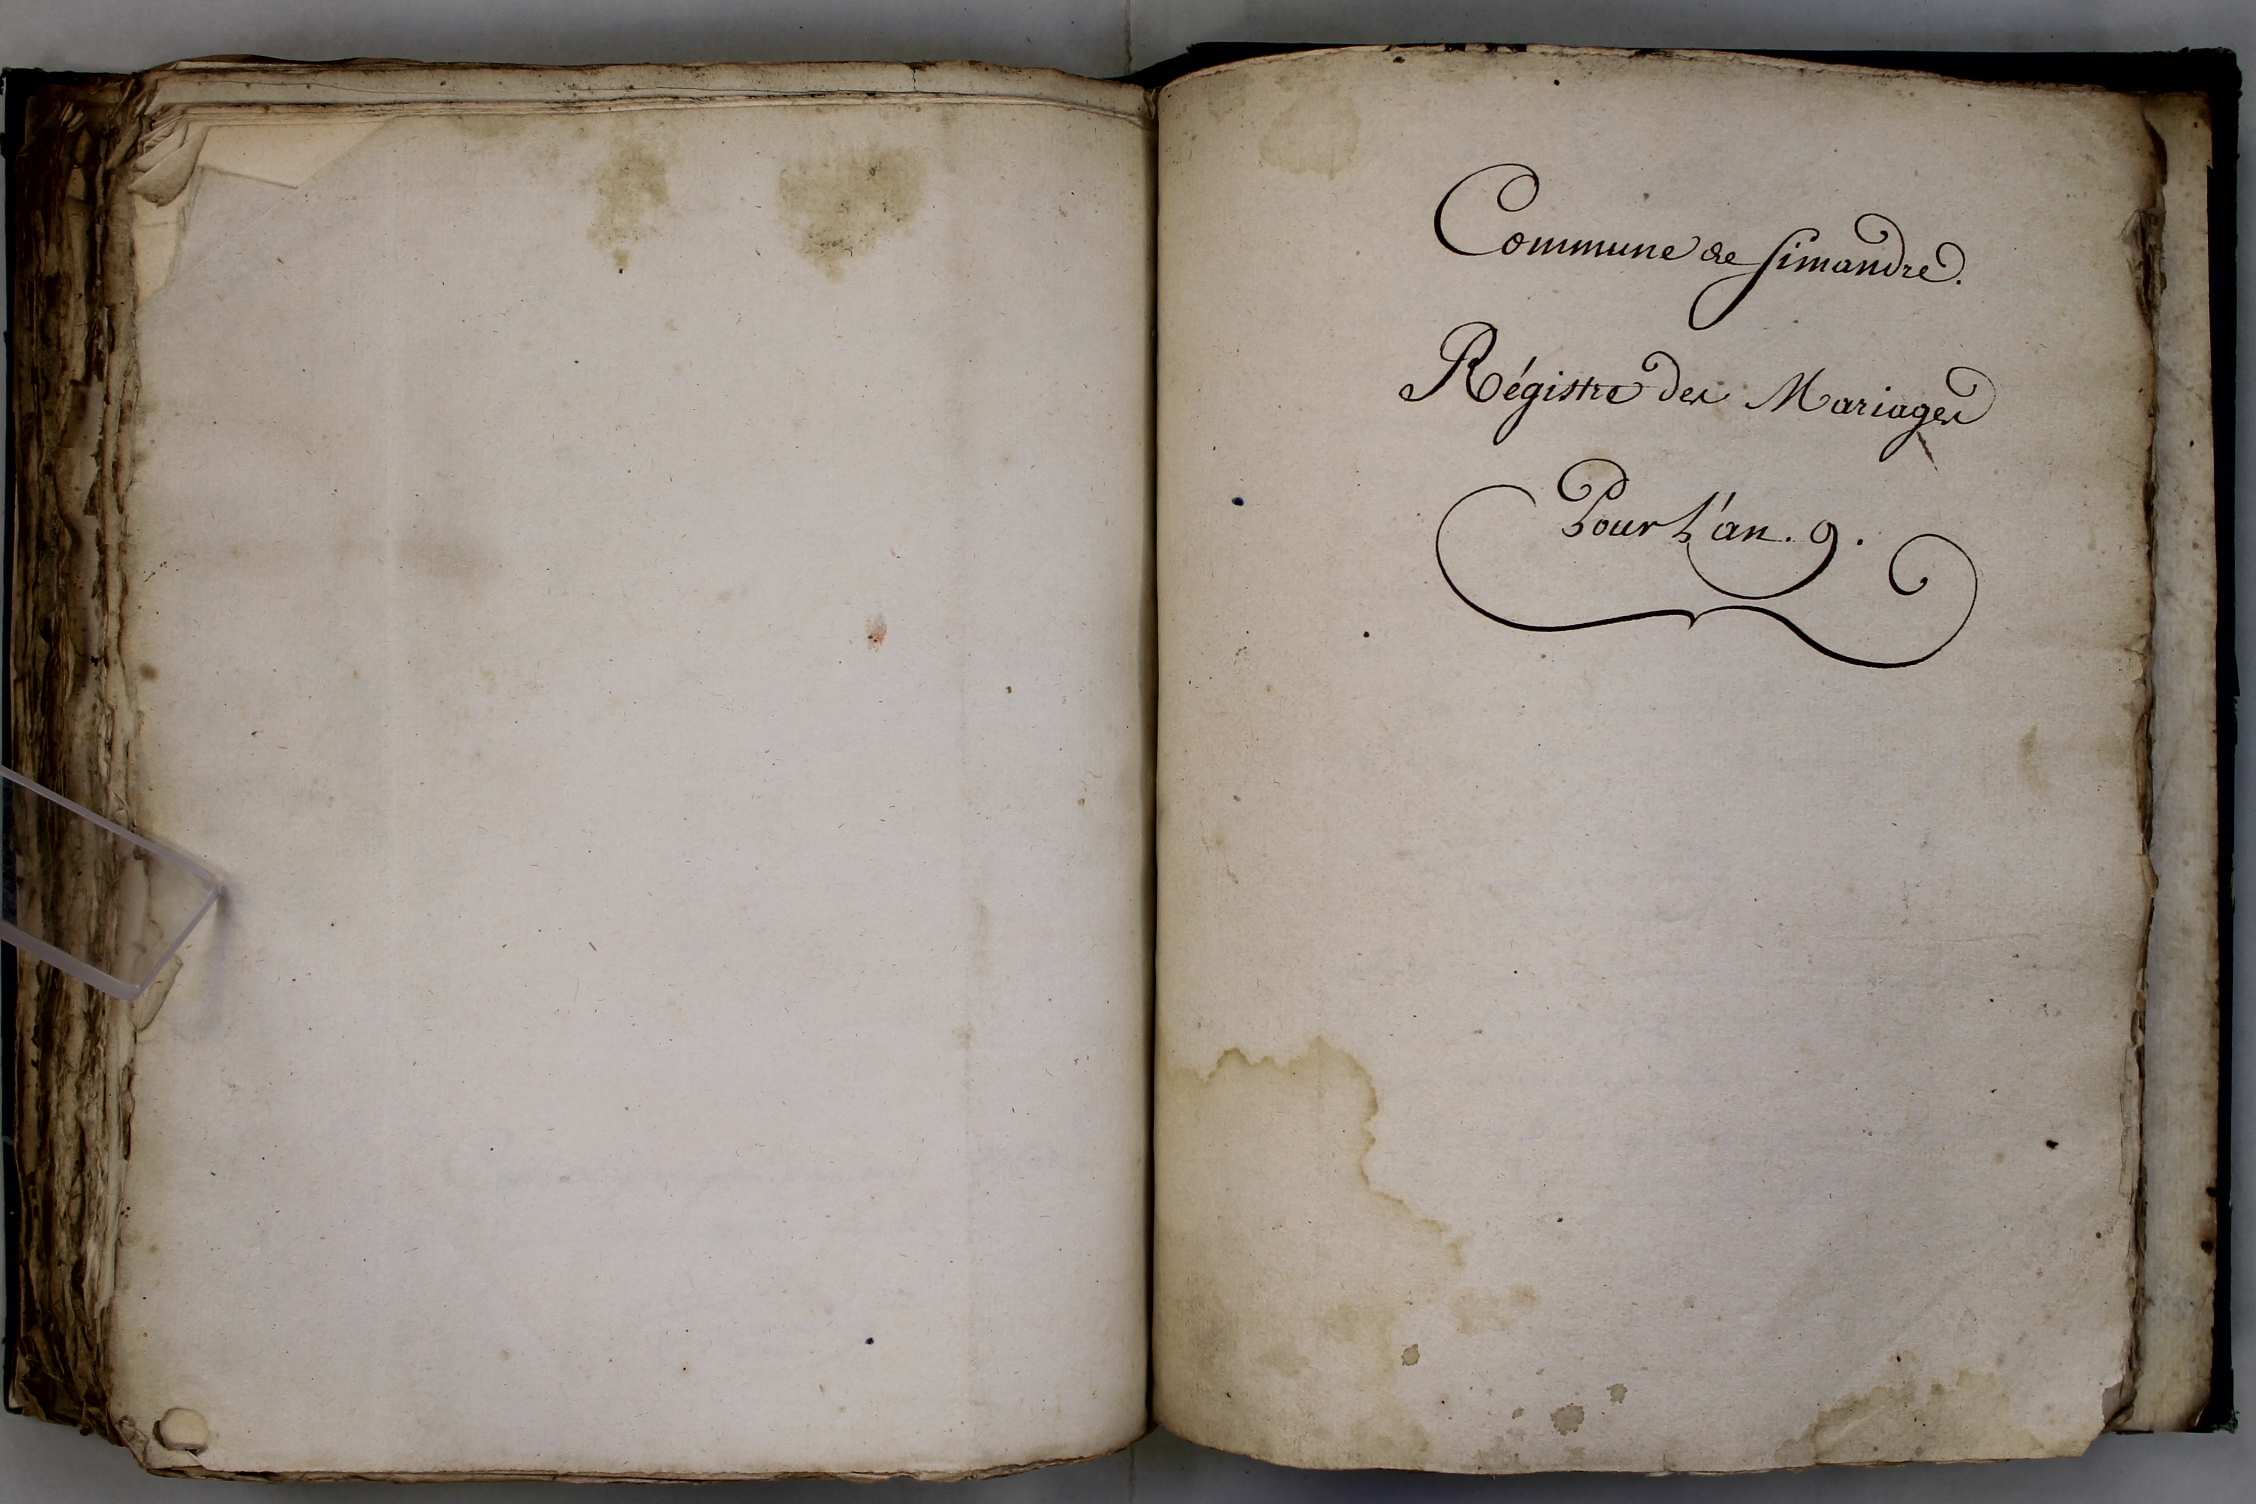 Commune de Simandre.
Régistre des Mariages
Pour L'an. 9.